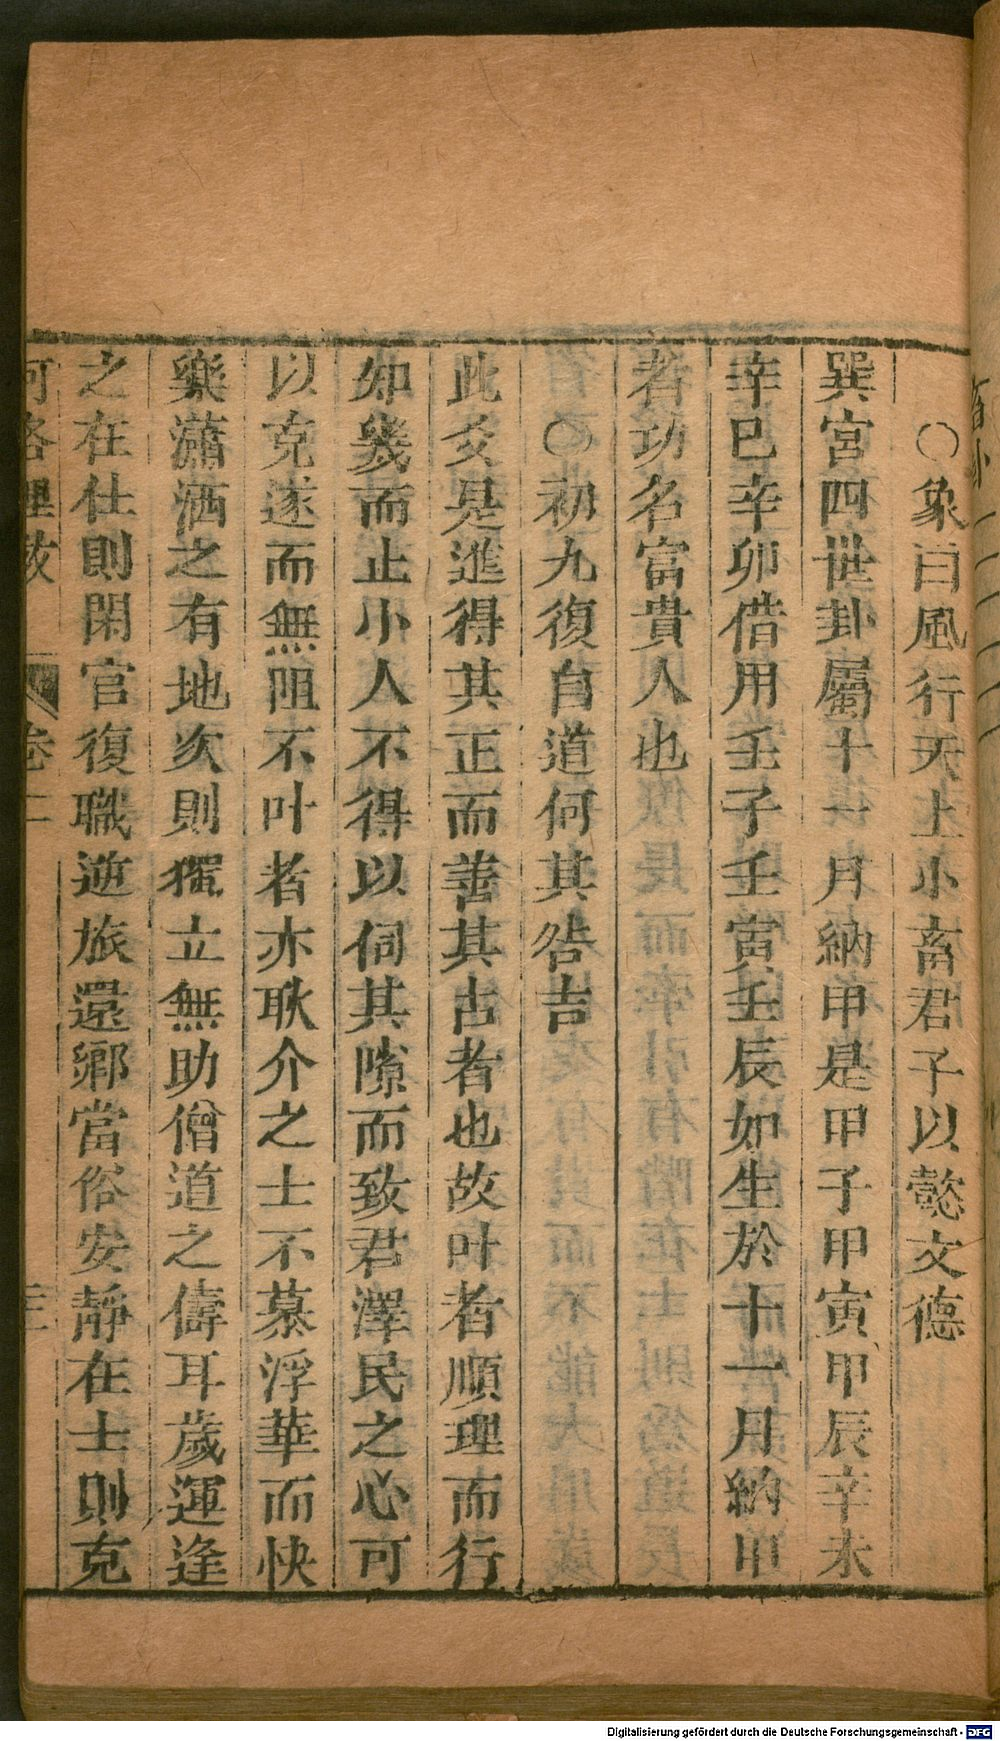 〇象曰風行天上小畜君子以懿文德
巽宮四世卦屬十一月納甲是甲子甲寅甲辰辛未
辛巳辛卯借用壬子壬寅壬辰如生於十一月納甲
者功名富貴人也
〇初九復自道何其咎吉
此爻是進得其正而善其占者也故叶者順理而行
知幾而止小人不得以伺其隙而致君澤民之心可
以克遂而無阻不叶者亦耿介之士不慕浮華而快
樂瀟洒之有地次則獨立無助僧道之儔耳歲運逢
之在仕則閑官復職逰旅還鄉當俗安靜在士則克
河洛理數
卷二
三
Digitalisierung gefördert durch die Deutsche Forschungsgemeinschaft - DFG